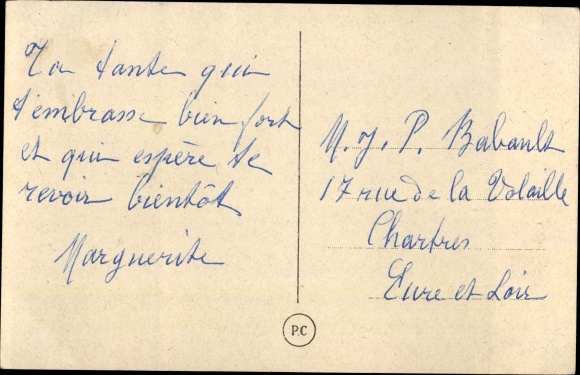 Ta tante qui
t'embrasse bien fort
et qui espère te
revoir bientôt
Marguerite
M. J. P. Babault
17 rue de la Volaille
Chartres
Eure et Loir
P.C